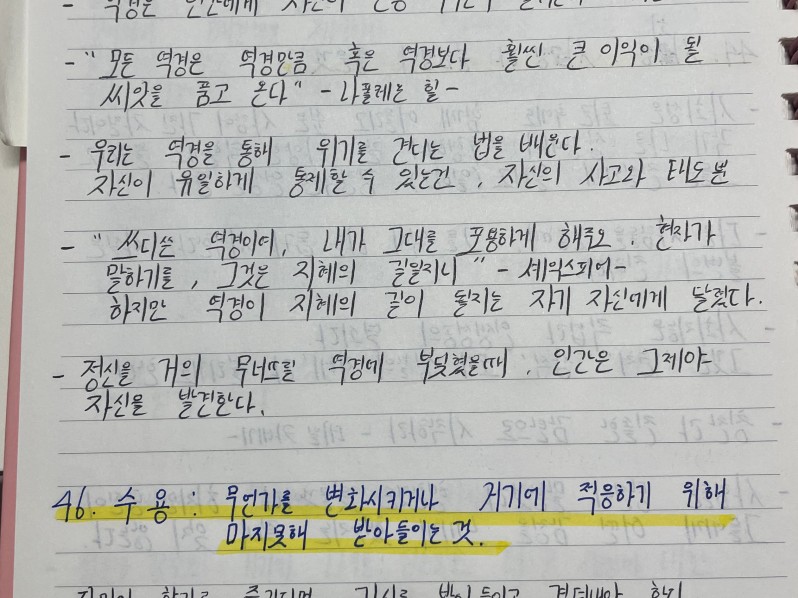 - 역경은 인간에게 자신의
- " 모든 역경은 역경만큼 혹은 역경보다 훨씬 큰 이익이 될
씨앗을 품고 온다 " - 나폴레온 힐 -
- 우리는 역경을 통해 위기를 견디는 법을 배운다.
자신이 유일하게 통제할 수 있는건, 자신의 사고와 태도 뿐
- " 쓰디쓴 역경이여, 내가 그대를 포용하게 해주오. 현자가
말하기를, 그것은 지혜의 길일지니 " - 셰익스피어 -
하지만 역경이 지혜의 길이 될지는 자기 자신에게 달렸다.
- 정신을 거의 무너뜨릴 역경에 부딪혔을때, 인간은 그제야
자신을 발견한다.
46. 수용 : 무언가를 변화시키거나 거기에 적응하기 위해
마지못해 받아들이는 것.